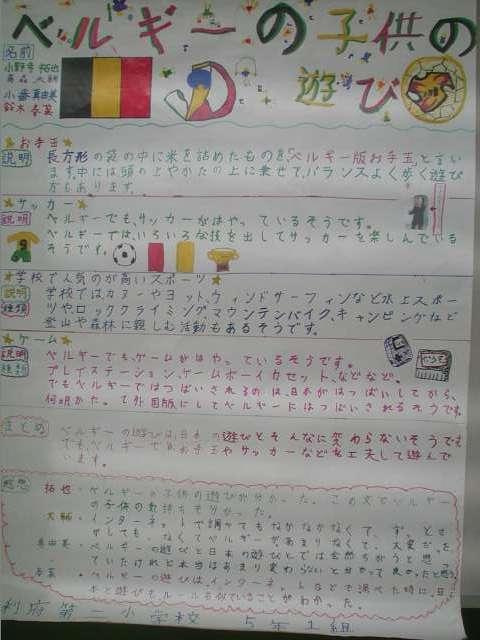 ベルギーの子供の
遊び
名前
小野寺 拓也
小番真由美
鈴木 春英
☆お手玉☆
説明
長方形の袋の中に米を詰めたものを「ベルギー版お手玉」と言い
ます。中には頭の上やかたの上に乗せて、バランスよく歩く遊び
方もあります。
☆サッカー☆
説明
ベルギーでも、サッカーがはやっているそうです。
ベルギーでは、いろいろな技を出してサッカーを楽しんでいる
そうです。
☆学校で人気のが高いスポーツ☆
説明
種類
学校ではカヌーやヨット、ウィンドサーフィンなど水上スポー
ツやロッククライミング、マウンテンバイク、キャンピングなど
登山や森林に親しむ活動もあるそうです。
☆ゲーム☆
説明
種類
ベルギーでも、ゲームがはやっているそうです。
プレイステーション、ゲームボーイカセット、などなど。
でもベルギーではつばいされるのは、日本がはっばいしてから、
何明かたって外国版にしてベルギーにはつばいされるそうです。
まとめ
ベルギーの遊びは、日本の遊びとそんなに変わらないそうです。
でも、ベルギーでもお手玉やサッカーなどを工夫して遊んで
います。
感想
拓也・ベルギーの子供の遊びが分かった。この文でベルギー
の子供の気持ち
大輔・インターネットで調べてもなかなかなくて、ずっとさ
がしても、なくてベルギーがあまりなくて、大変だった
真由美・ベルギーの遊びと日本の遊びとでは全然ちがうと思っ
ていたけれど本当はあまり変わらないと分かって良かったと思う。
春英・ベルギーの遊びは、インターネットなどで調べた時に、日
本と遊びもルールも似ていることがわかった。
利府第一小学校 5年1組